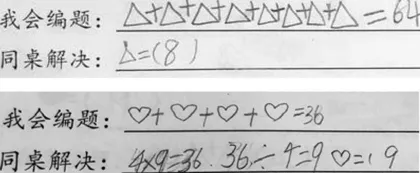 我会编题：△+△+△+△+△+△+△+△=64
同桌解决：△=(8)
我会编题：♡+♡+♡+♡=36
同桌解决：4×9=36. 36÷4=9 ♡=(9